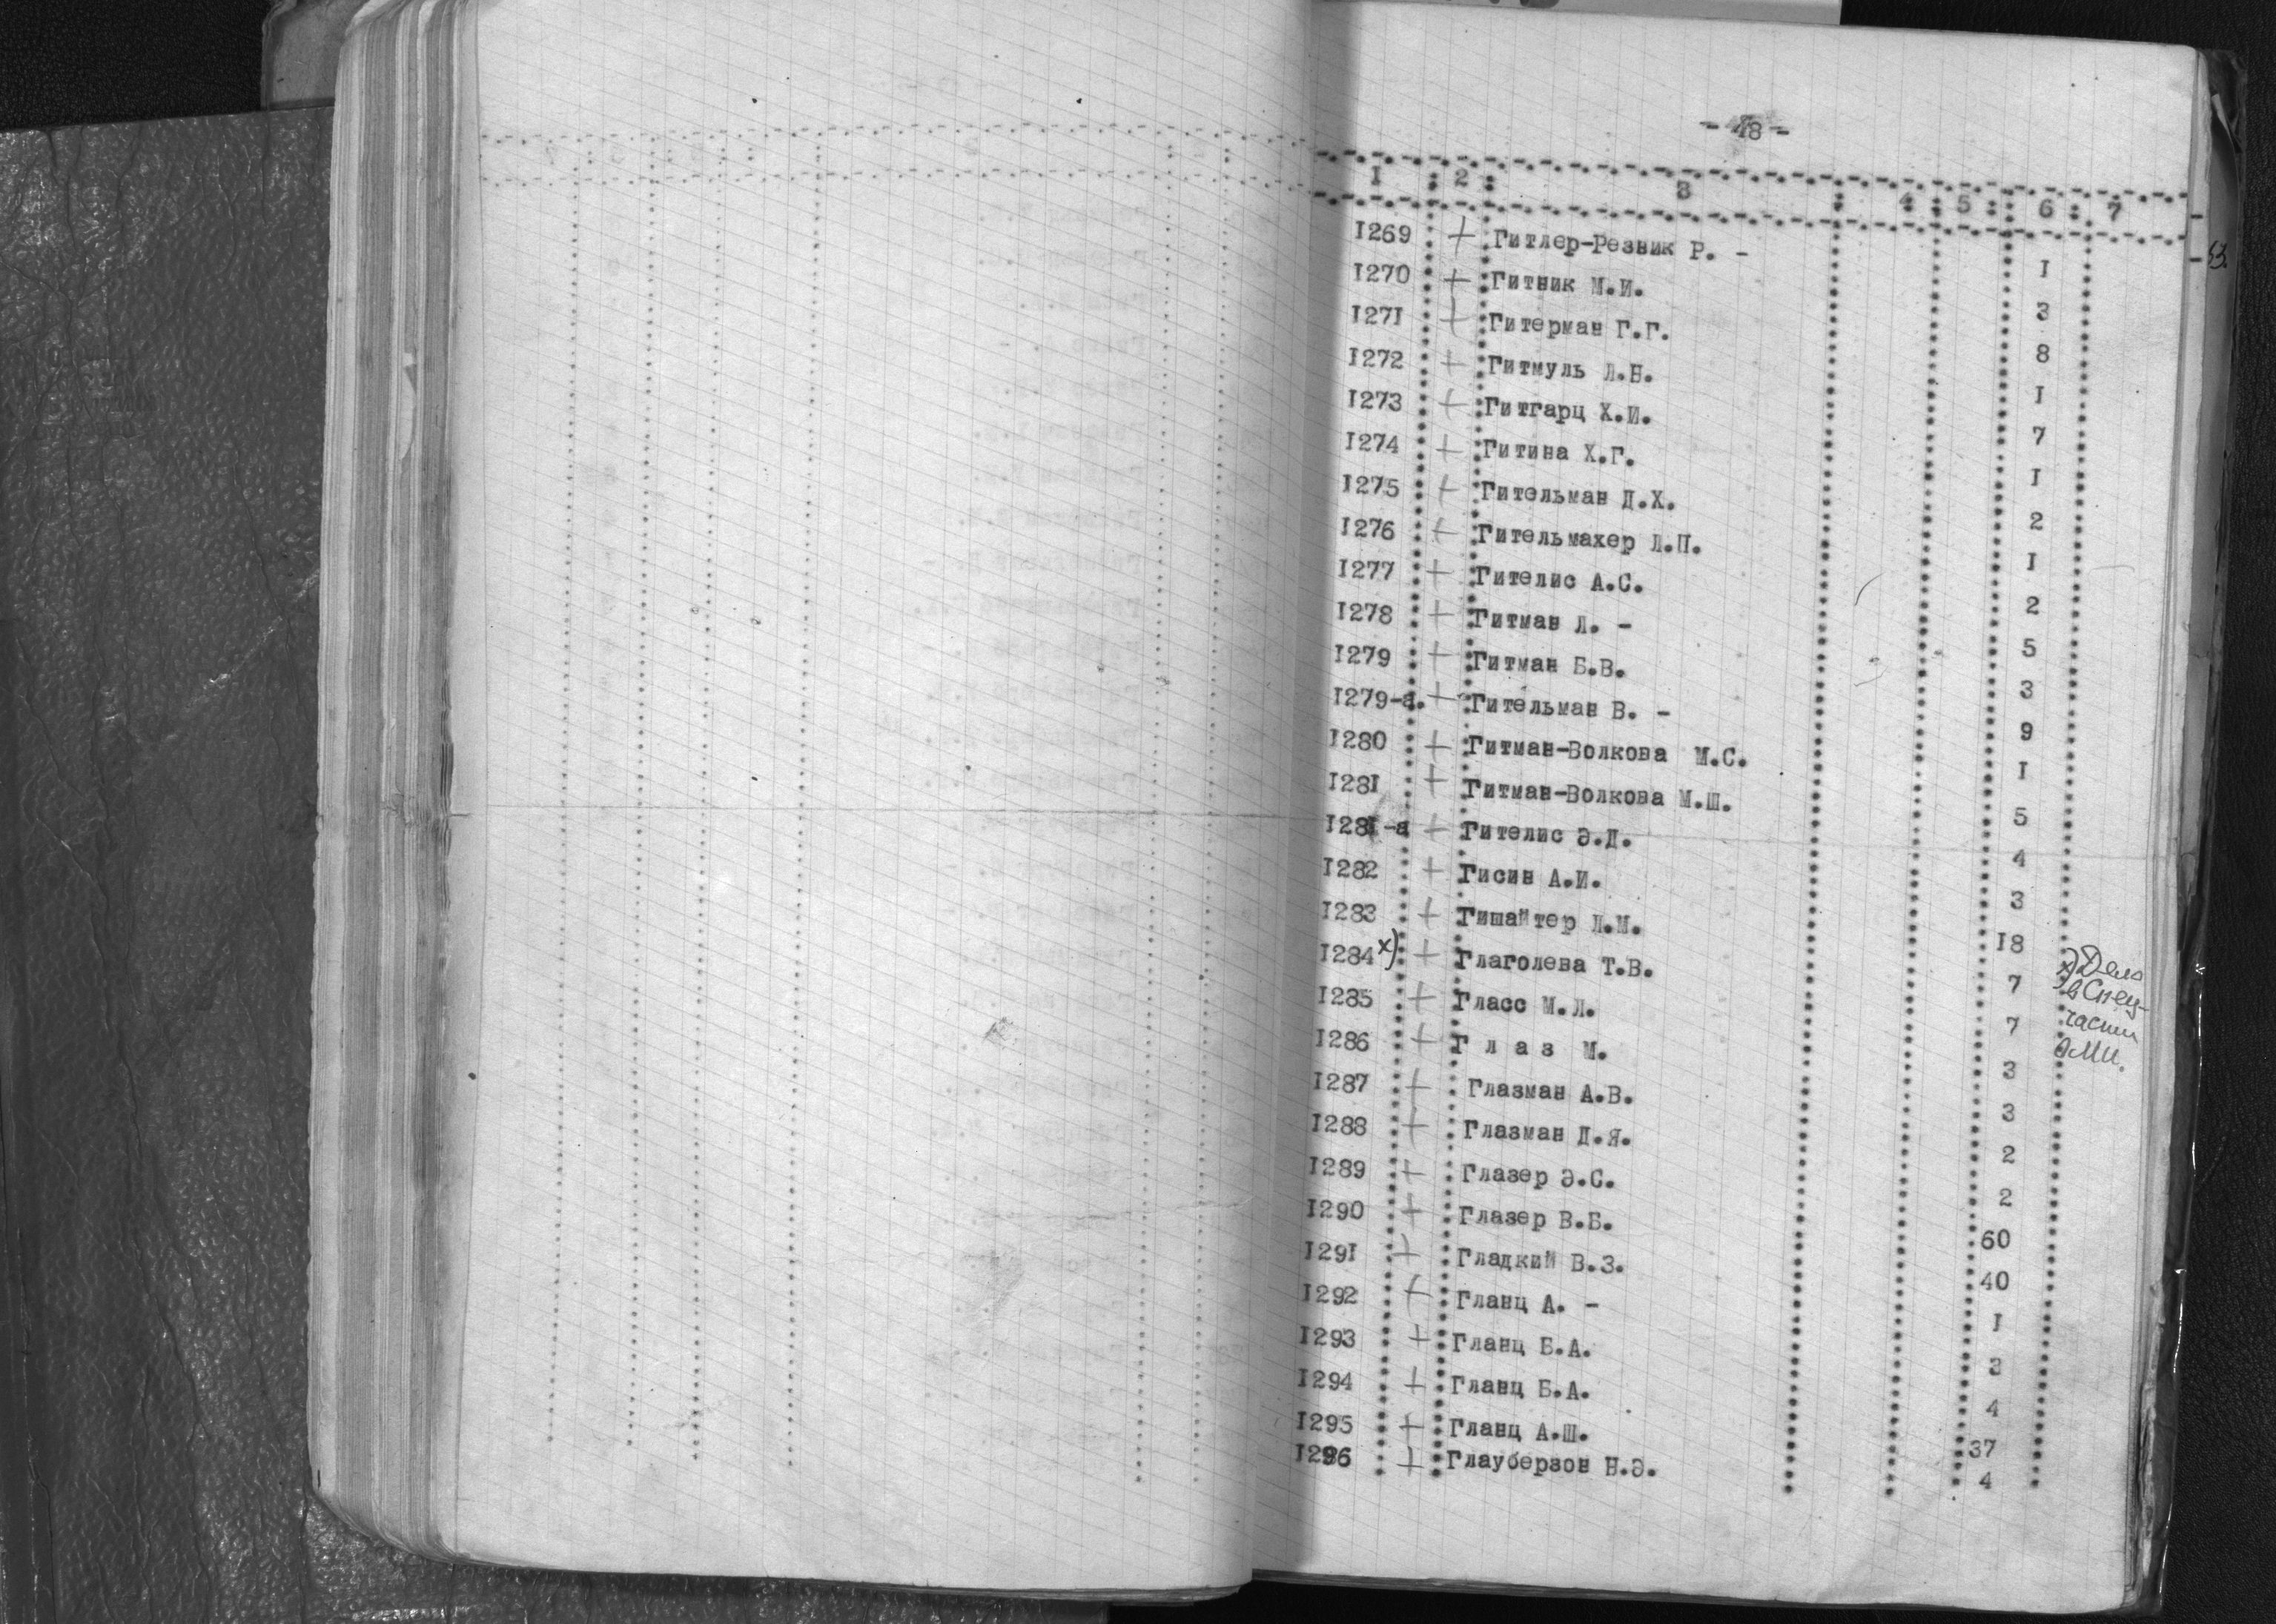 - 48 -
I 2 3 4 5 6 7
I269 + Гитлер-Резник Р. - I
I270 + Гитник М.И. 3
I27I + Гитерман Г.Г. 8
I272 + Гитмуль Л.Н. I
I273 + Гитгарц Х.И. 7
I274 + Гитина Х.Г. I
I275 + Гительман Д.Х. 2
I276 + Гительмахер Л.П. I
I277 + Гителис А.С. 2
I278 + Гитман Л. - 5
I279 + Гитман Б.В. 3
I279-а. + Гительман В. - 9
I280 + Гитман-Волкова М.С. I
I28I + Гитман-Волкова М.Ш. 5
I28I-а + Гителис Э.Д. 4
I282 + Гисин А.И. 3
I283 + Гишайтер Л.М. I8
I284 х) + Глаголева Т.В. 7
х) Дело
в Спец-
части
ОМИ.
I285 + Гласс М.Л. 7
I286 + Г л а з М. 3
I287 + Глазман А.В. 3
I288 + Глазман Д.Я. 2
I289 + Глазер Э.С. 2
I290 + Глазер В.Б. 60
I29I + Гладкий В.З. 40
I292 + Гланц А. - I
I293 + Гланц Б.А. 3
I294 + Гланц Б.А. 4
I295 + Гланц А.Ш. 37
I296 + Глауберзон Н.Э. 4